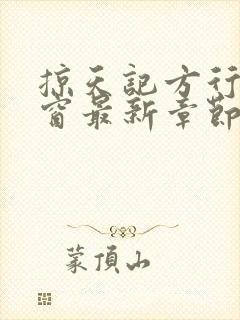 掠天記方行
窗最新章節
蒙頂山